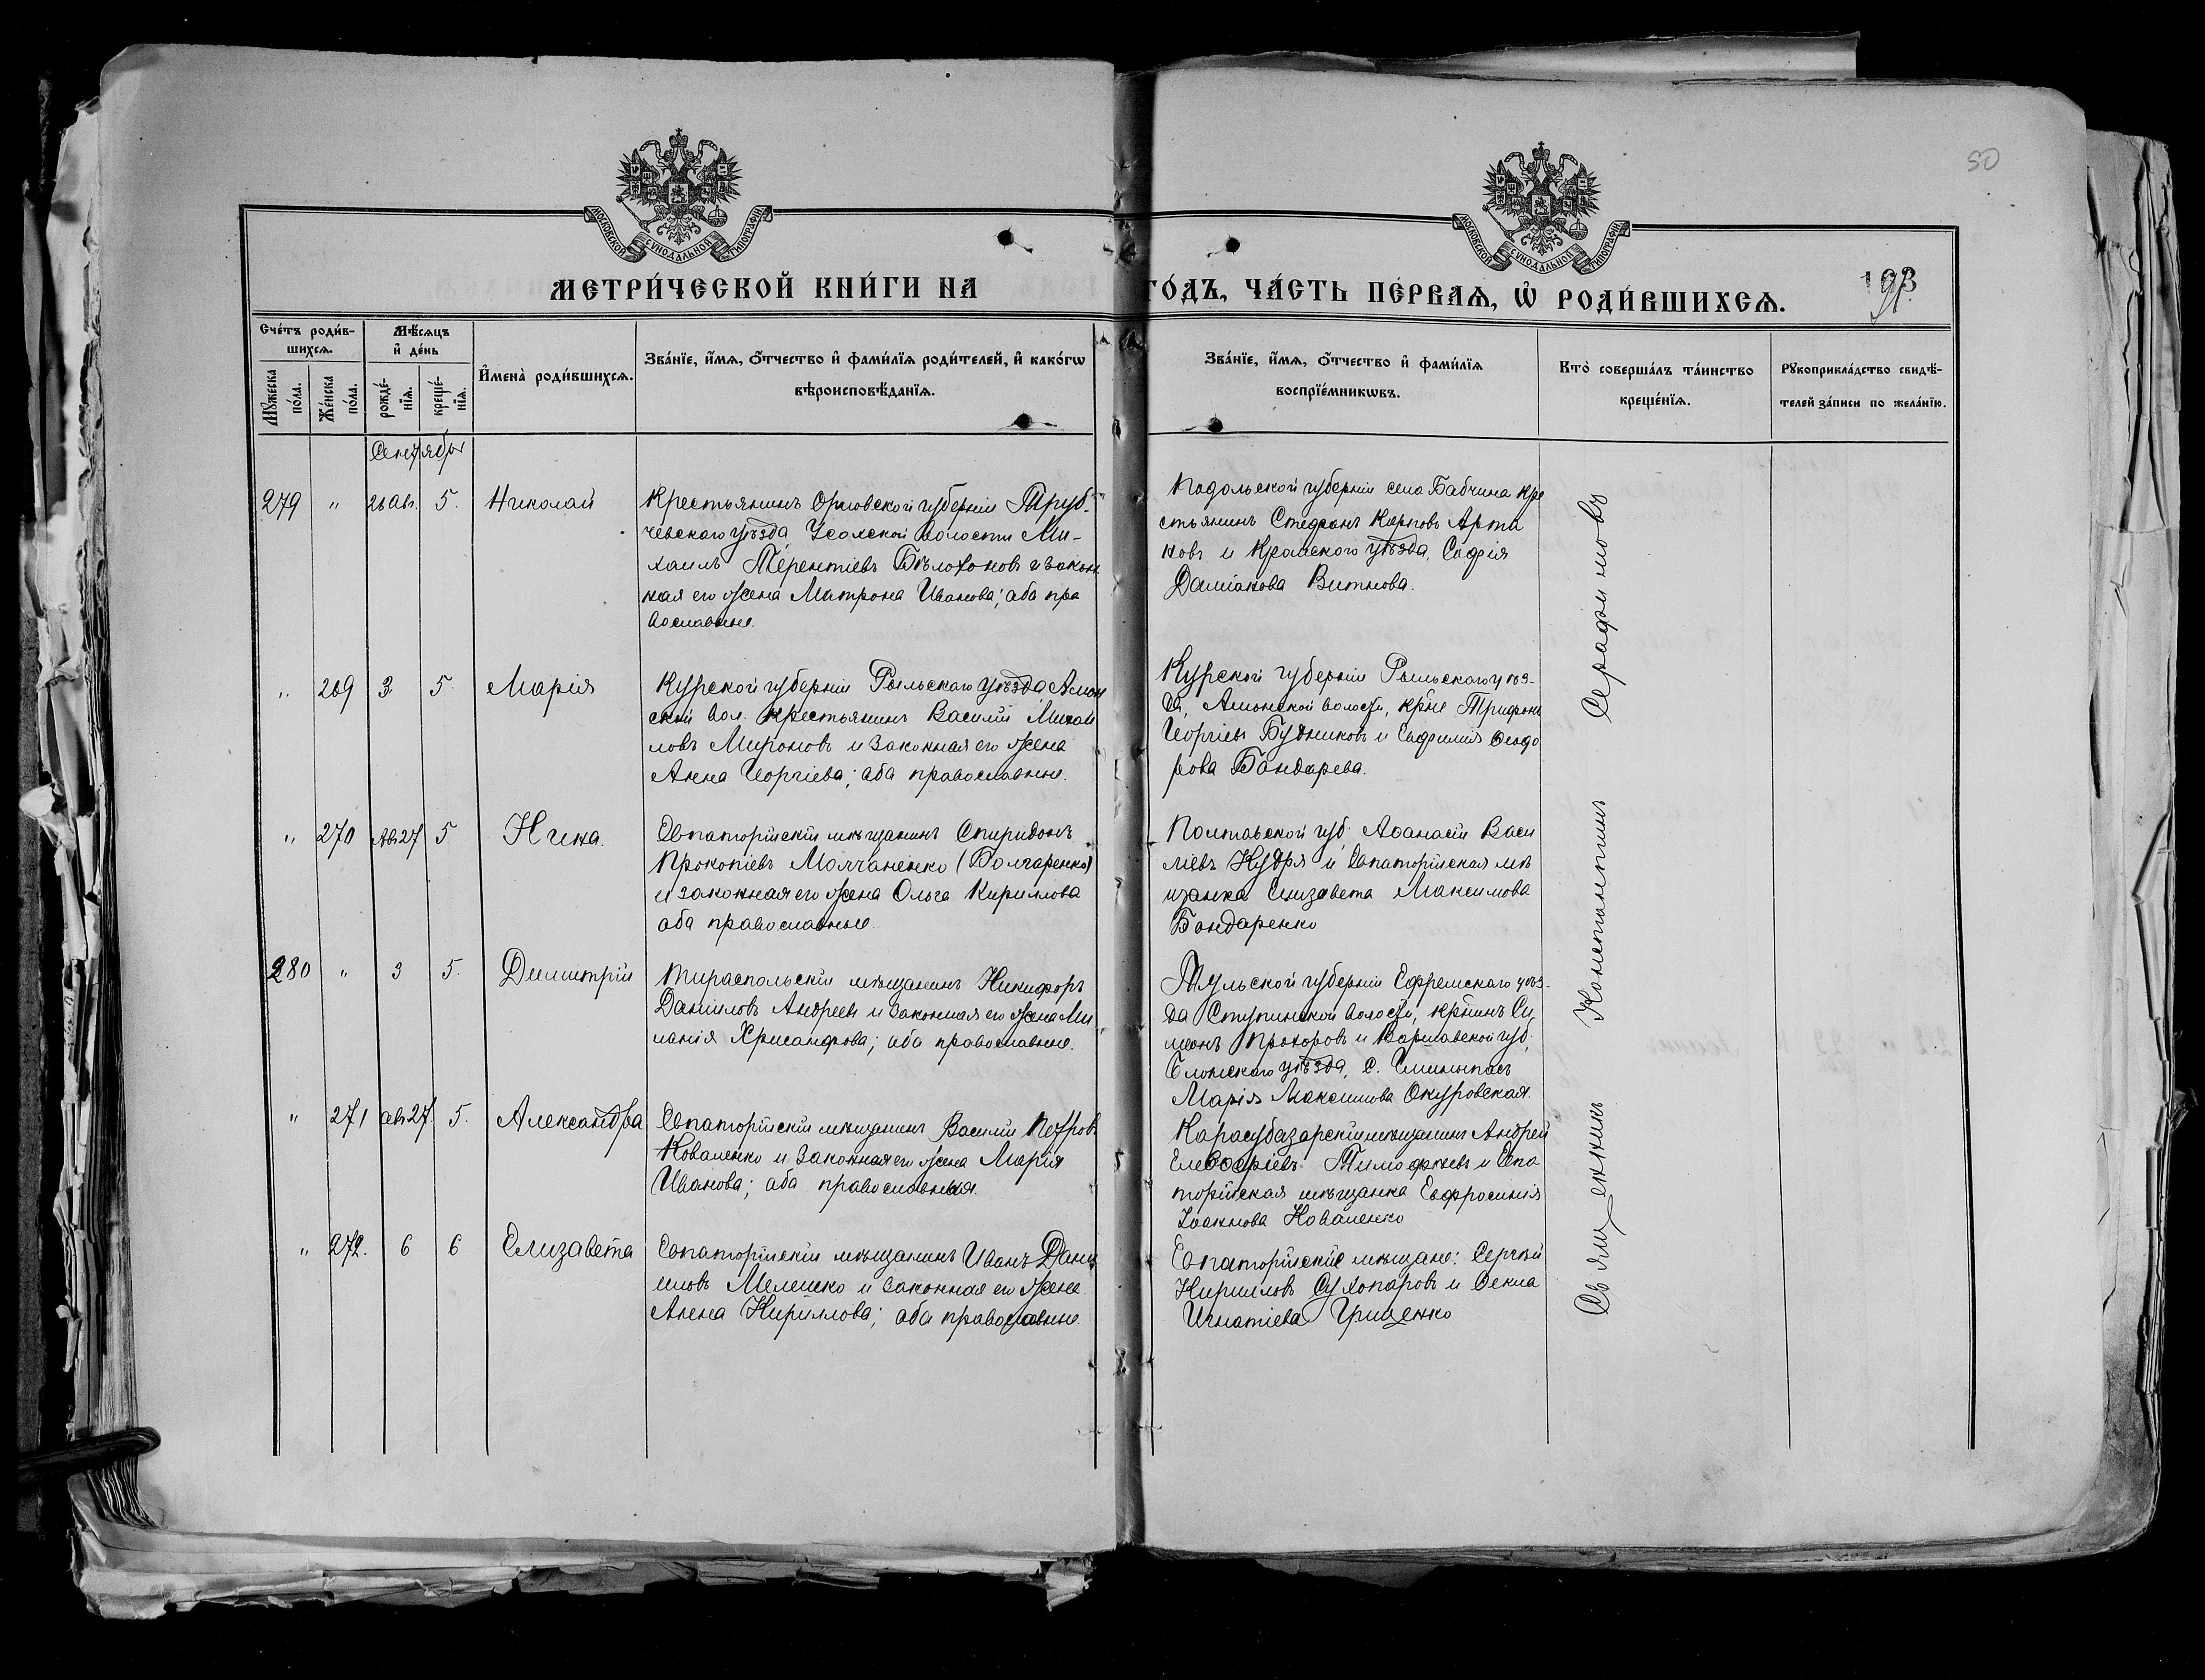 50
МОСКОВСКОЙ СѴНОДАЛЬНОЙ ТИПОГРАФІИ
МОСКОВСКОЙ СѴНОДАЛЬНОЙ ТИПОГРАФІИ
МЕТРИ́ЧЕСКОЙ КНИ́ГИ НА ГО́ДЪ, ЧА́СТЬ ПЕ́РВАѦ, Ѡ РОДИ́ВШИХСѦ.
193
Сче́тъ роди́в-
шихсѧ.
Мѣ́сѧцъ
и де́нь
Мꙋ́жеска
по́ла.
Же́нска
по́ла.
рожде́-
нїѧ.
креще́-
нїѧ.
И҆мена̀ роди́вшихсѧ.
Зва́нїе, и҆́мѧ, ѻ҆́тчество и҆ фами́лїѧ роди́телей, и҆ како́гѡ
вѣроисповѣ́данїѧ.
Зва́нїе, и҆́мѧ, ѻ҆́тчество и҆ фами́лїѧ
воспрїе́мникѡвъ.
Кто̀ соверша́лъ та́инство
креще́нїѧ.
Рꙋкоприкла́дство свидѣ́-
телей за́писи по жела́нїю.
Сентябрь
279 " 28 Ав. 5. Николай
Крестьянинъ Орловской губерніи Труб-
чевскаго уѣзда, Усохской волости Ми-
хаилъ Терентіевъ Бѣлохоновъ и закон
ная его жена Матрона Иванова; оба пра
вославные.
Подольской губерніи села Бабчина кре
стьянинъ Стефанъ Карповъ
и уѣзда, Софія
Даміанова
" 269 3 5. Марія
Курской губерніи Рыльскаго уѣзда Амон
ской вол. крестьянинъ Василій Михаи
ловъ Мироновъ и законная его жена
Анна Георгіева; оба православные.
Курской губерніи Рыльскаго уѣз-
да, Амонской волости, кр-не Трифонъ
Георгіевъ Будниковъ и Ѳеодо
рова Бондарева.
" 270 Авг 27 5 Нина.
Евпаторійскій мѣщанинъ Спиридонъ
Прокопіевъ Молчаненко (Болчаренко)
и законная его жена Ольга Кириллова
оба православные.
Полтавской губ. Аѳанасій Васи
ліевъ Кудря и Евпаторійская мѣ
щанка Елизавета Максимова
Бондаренко
280 " 3 5. Димитрій
Тираспольскій мѣщанинъ Никифоръ
Даніиловъ Андреевъ и законная его жена Ми
ланія Хрисанфова; оба православные.
Тульской губерніи Ефремскаго уѣз-
да Ступинской волости, кр-нинъ Си
меонъ Прохоровъ и Варшавской губ.
Блонскаго уѣзда, с.
Марія Максимова Окуровская.
" 271 авг 27. 5. Александра
Евпаторійскій мѣщанинъ Василій Петровъ
Коваленко и законная его жена Марія
Иванова; оба православныя.
Карасубазарскій мѣщанинъ Андрей
Тимофѣевъ и Евпа
торійская мѣщанка Евфросинія
Іоаннова Коваленко
" 272. 6 6 Елизавета
Евпаторійскій мѣщанинъ Иванъ Дани
иловъ Мелешко и законная его жена
Анна Кириллова; оба православные.
Евпаторійскіе мѣщане: Сергѣй
Кирилловъ Сухопаровъ и Ѳекла
Игнатіева Грищенко
Священникъ Константинъ Серафимовъ